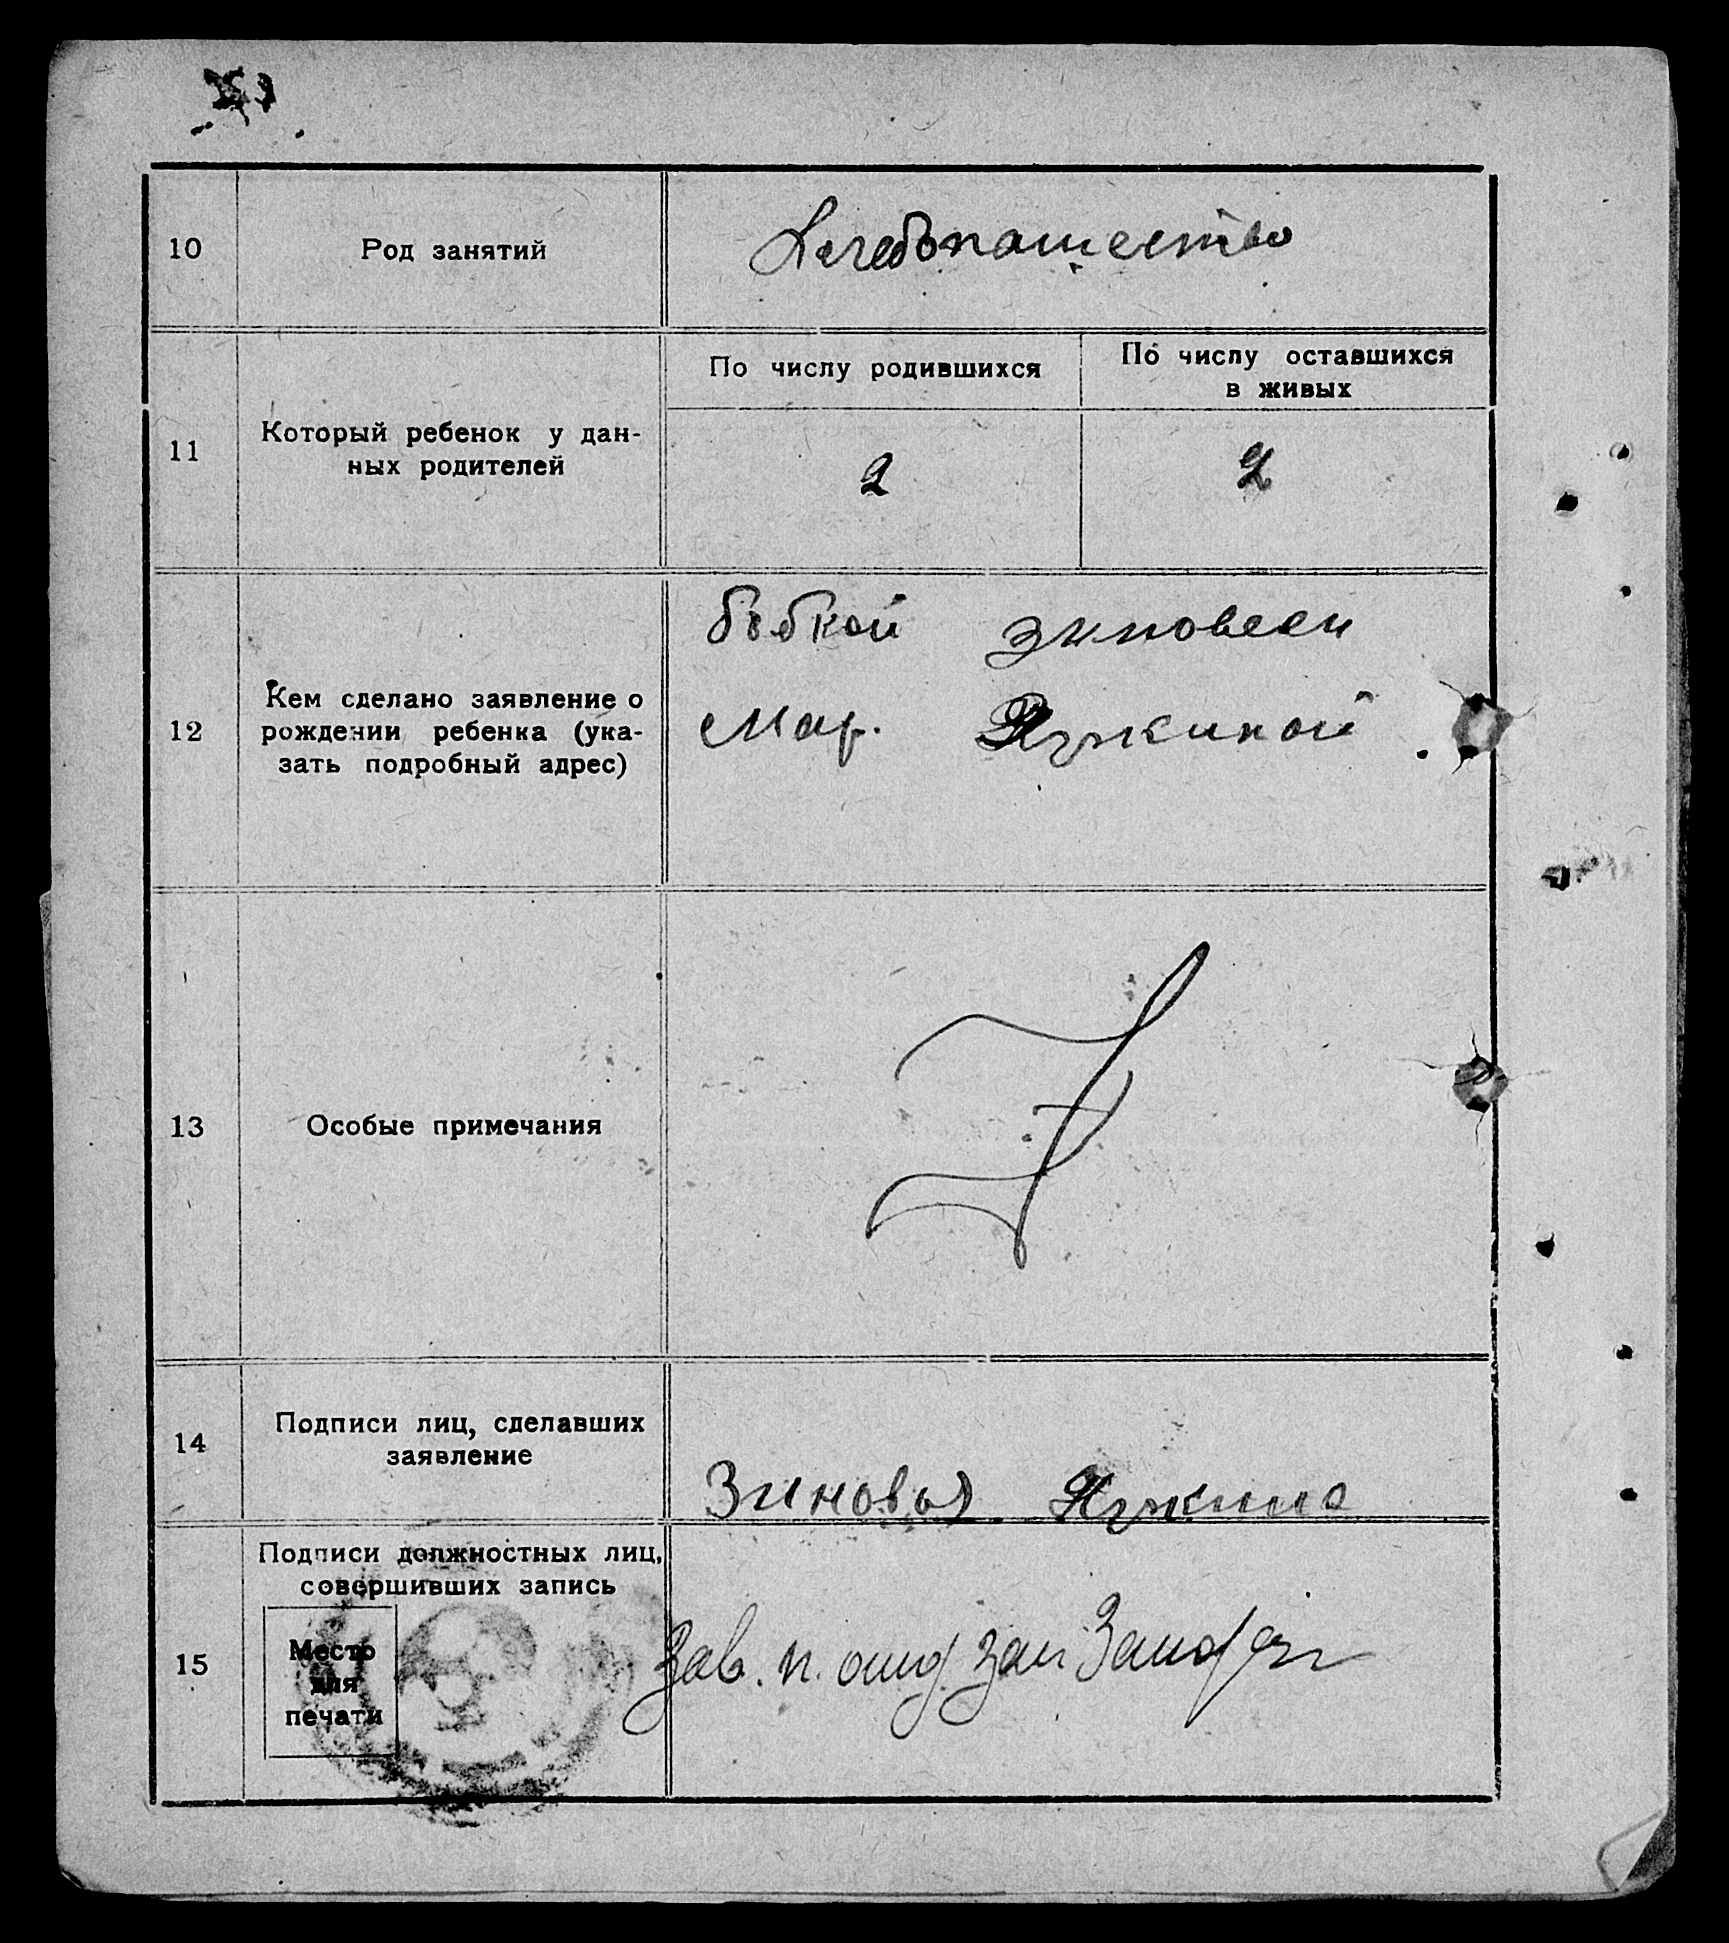 10
Род занятий
Хлебопашество
11
Который ребенок у дан-
ных родителей
По числу родившихся
По числу оставшихся
в живых
2
2
12
Кем сделано заявление о
рождении ребенка (ука-
зать подробный адрес)
бабкой
Мар.
13
Особые примечания
14
Подписи лиц, сделавших
заявление
Зиновья
15
Подписи должностных лиц,
совершивших запись
Место
для
печати
Зав. п.